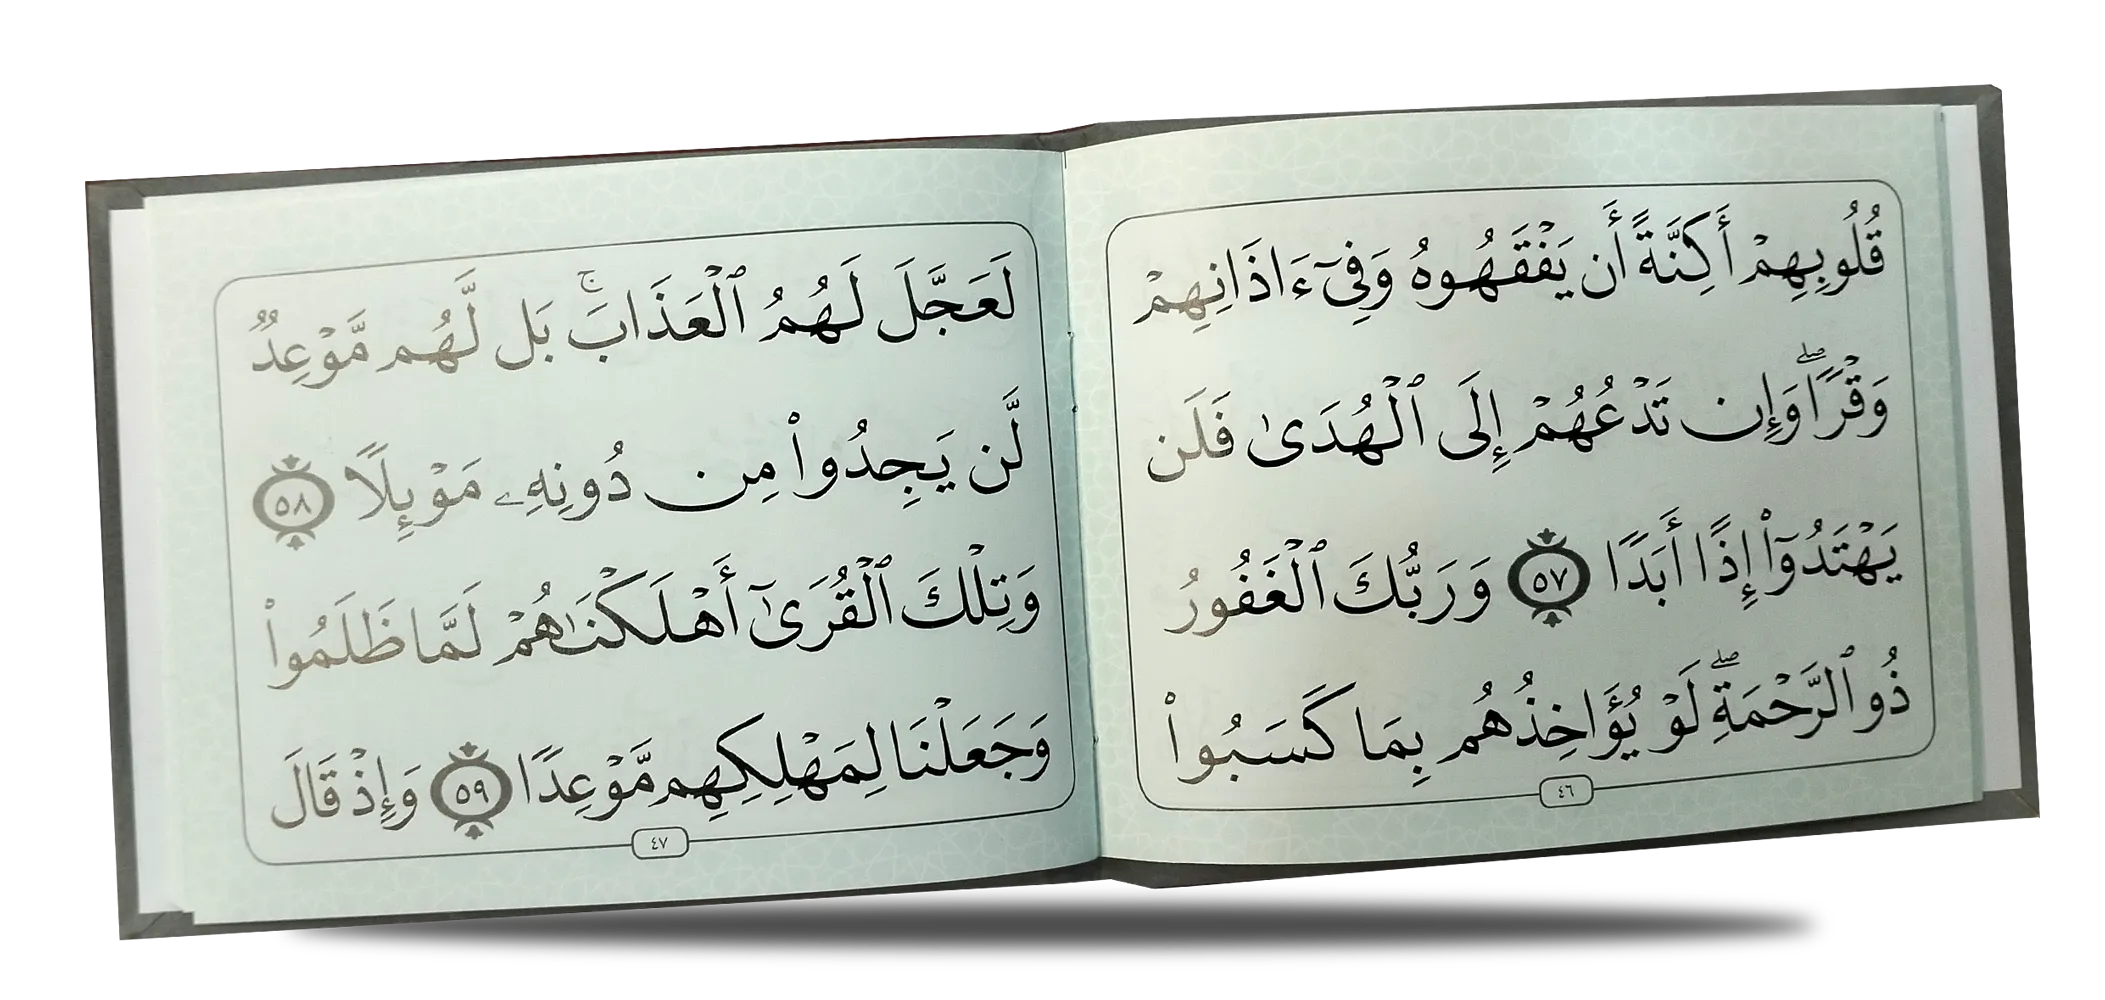 قُلُوبِهِمْ أَكِنَّةً أَن يَفْقَهُوهُ وَفِىٓ ءَاذَانِهِمْ
وَقْرًا ۖ وَإِن تَدْعُهُمْ إِلَى ٱلْهُدَىٰ فَلَن
يَهْتَدُوٓا۟ إِذًا أَبَدًا ٥٧ وَرَبُّكَ ٱلْغَفُورُ
ذُو ٱلرَّحْمَةِ ۖ لَوْ يُؤَاخِذُهُم بِمَا كَسَبُوا۟
٤٦
لَعَجَّلَ لَهُمُ ٱلْعَذَابَ ۚ بَل لَّهُم مَّوْعِدٌ
لَّن يَجِدُوا۟ مِن دُونِهِۦ مَوْئِلًا ٥٨
وَتِلْكَ ٱلْقُرَىٰٓ أَهْلَكْنَـٰهُمْ لَمَّا ظَلَمُوا۟
وَجَعَلْنَا لِمَهْلِكِهِم مَّوْعِدًا ٥٩ وَإِذْ قَالَ
٤٧